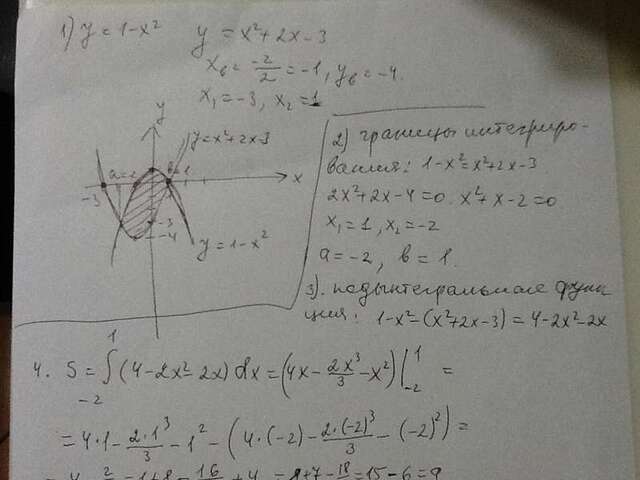 1) y = 1-x² y = x²+2x-3
xв = -2/2 = -1, yв = -4.
x₁ = -3, x₂ = 1
y
y = x²+2x-3
a=-2
в=1
x
-3
-3
-4
y = 1-x²
2) границы интегриро-
вания: 1-x² = x²+2x-3
2x²+2x-4=0. x²+x-2=0
x₁ = 1, x₂ = -2
a = -2, в = 1.
3). подынтегральная функ
ция: 1-x²-(x²+2x-3) = 4-2x²-2x
4. S = ∫₋₂¹ (4-2x²-2x) dx = (4x - 2x³/3 - x²) |₋₂¹ =
= 4·1 - 2·1³/3 - 1² - (4·(-2) - 2·(-2)³/3 - (-2)²) =
= 4 - 2/3 - 1+8 - 16/3 + 4 = 8+7 - 18/3 = 15 - 6 = 9